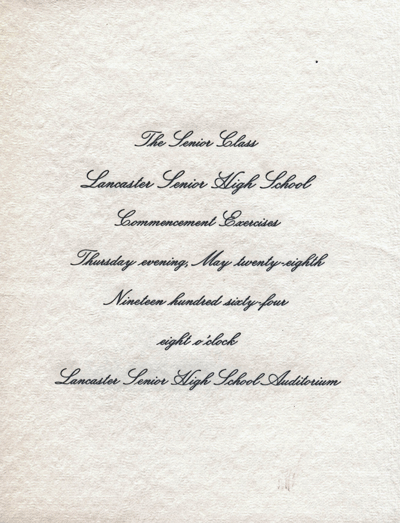 The Senior Class
Lancaster Senior High School
Commencement Exercises
Thursday evening, May twenty-eighth
Nineteen hundred sixty-four
eight o'clock
Lancaster Senior High School Auditorium